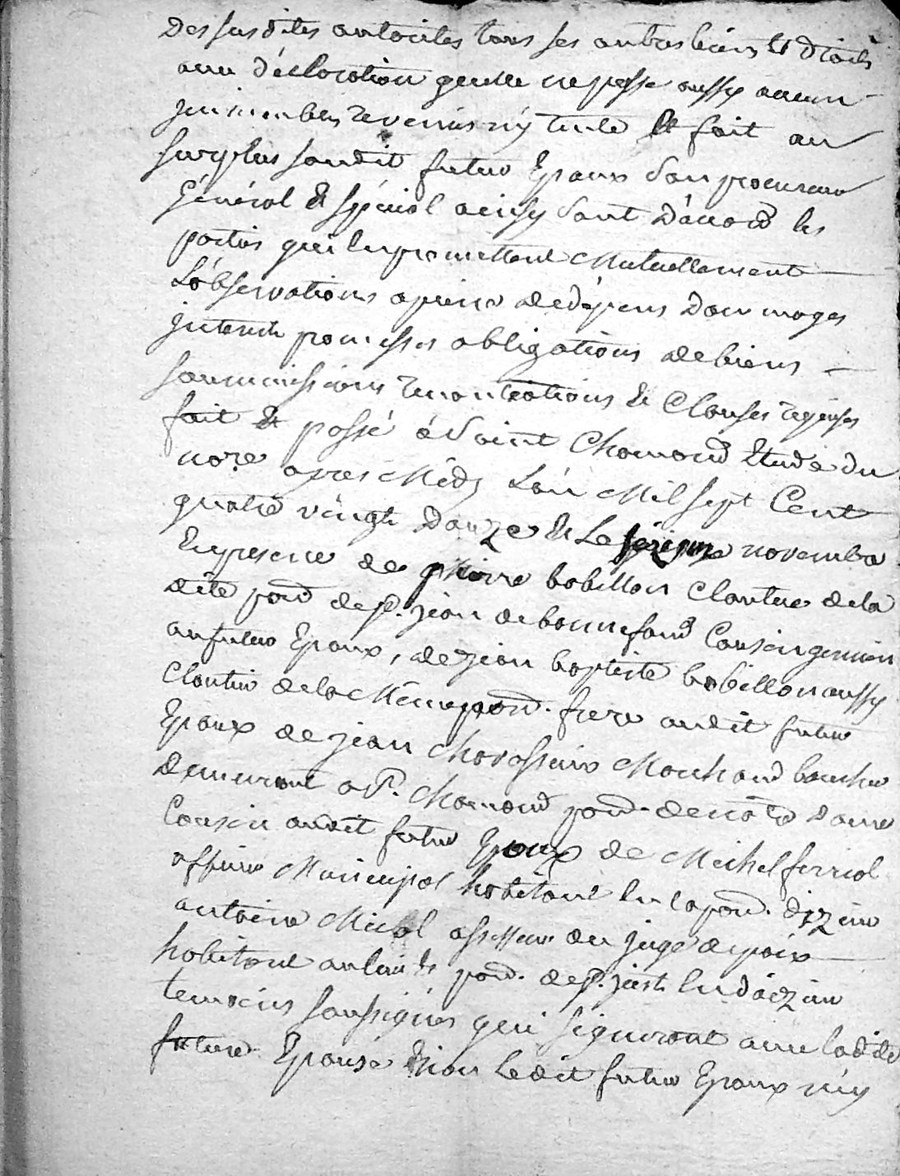 Des susdites autorités tous ses autres biens et droits
avec déclaration quelle ne possede aussy aucun
immeubles revenus ny tutele et fait au
surplus sondit futur Epoux son procureur
Général et spécial ainsy sont d'accord les
parties qui en promettent Mutuellement
L'observations a peine de dépens dommages
interets promesses obligations de biens
soummissions renontiations et Clauses requises
fait et passé à Saint Chamond Etude du
no.re apres Midy L'an Mil sept Cent
quatre vingt douze et Le seizieme novembre
En presence de pierre bobillon Cloutier de la
dite parr. de St. jean de bonnefond Cousin germain
au futur Epoux, de jean baptiste bobillon aussy
Cloutier de la Meme parr. frere audit futur
Epoux de jean Chavassieux Marchand boucher
demeurant a St. Chamond parr. de notre dame
Cousin audit futur Epoux de Michel ferriol
officier Municipal habitant en la parr. dizieu
antoine assesseur du juge de paix
habitant au parr. de St. just En doizieu
temoins soussignés qui signeront avec ladite
future Epouse non Ledit futur Epoux niy